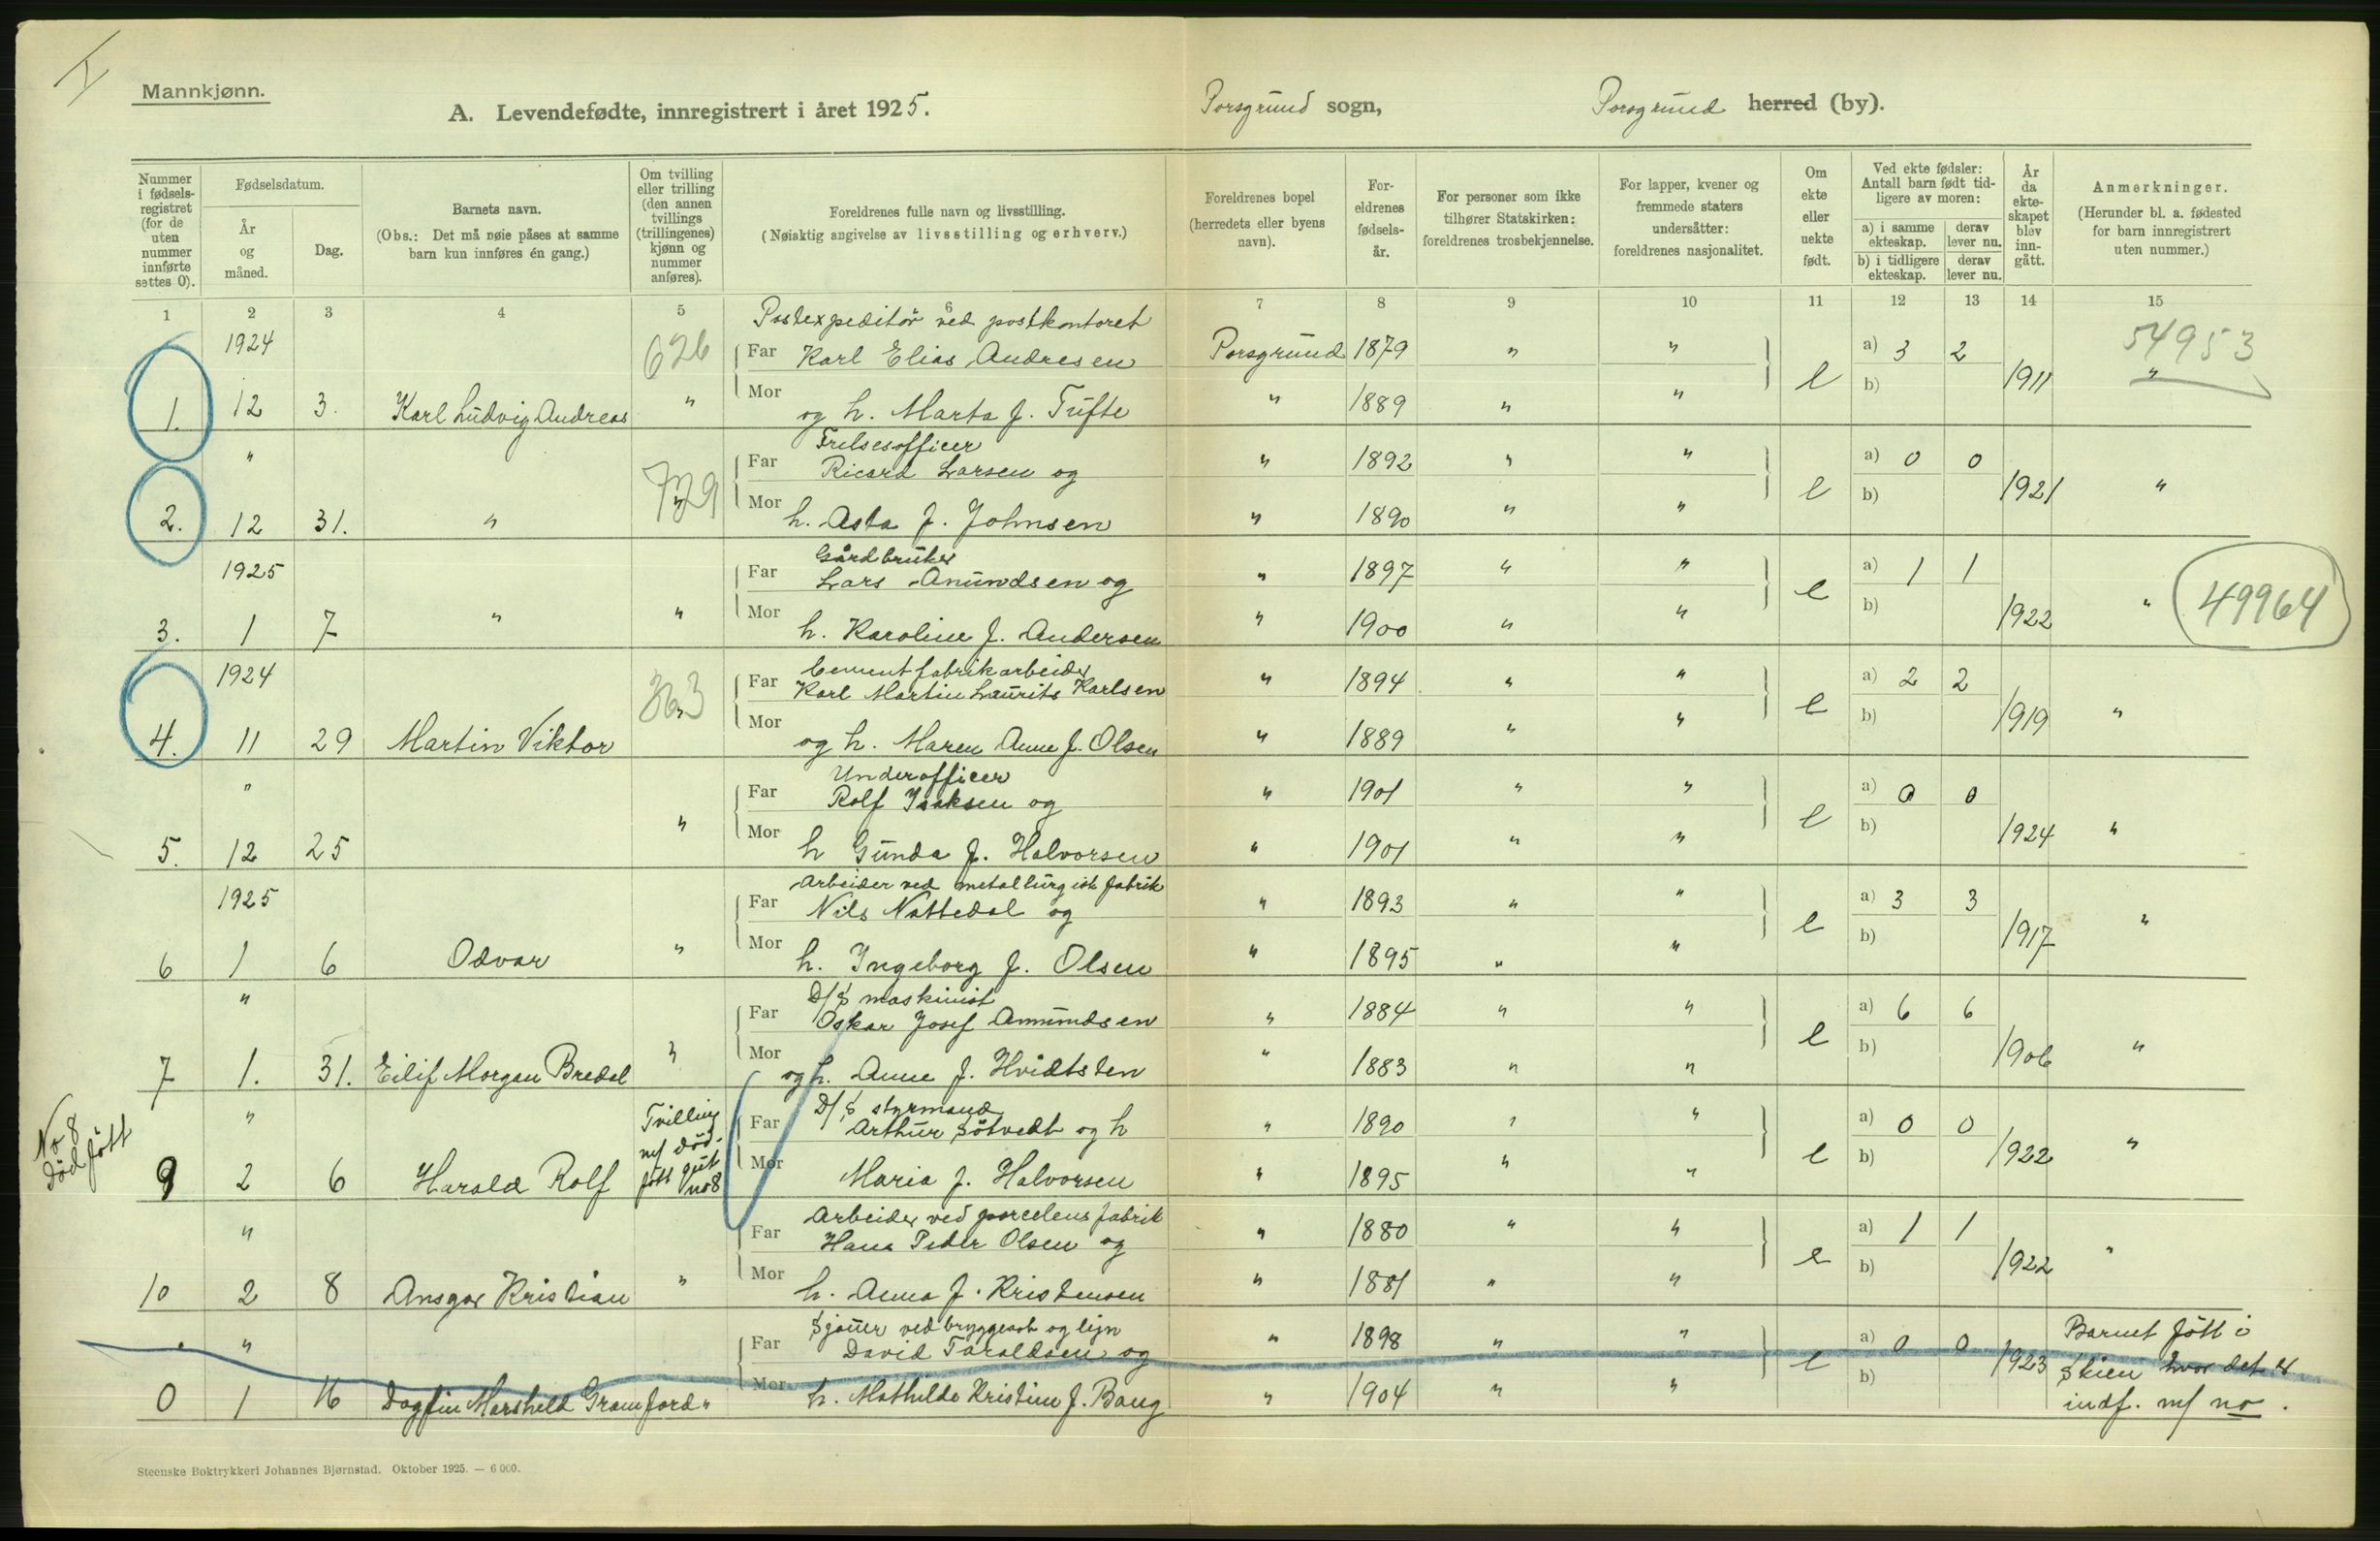 I
Mannkjønn.
A. Levendefødte, innregistrert i året 1925.
Porsgrund sogn,
Porsgrund herred (by).
Nummer i fødsels-registret (for de uten nummer innførte settes 0).
Fødselsdatum.
År og måned.
Dag.
Barnets navn.
(Obs.: Det må nøie påses at samme barn kun innføres én gang.)
Om tvilling eller trilling (den annen tvillings (trillingenes) kjønn og nummer anføres).
Foreldrenes fulle navn og livsstilling.
(Nøiaktig angivelse av livsstilling og erhverv.)
Foreldrenes bopel (herredets eller byens navn).
For-eldrenes fødsels-år.
For personer som ikke tilhører Statskirken: foreldrenes trosbekjennelse.
For lapper, kvener og fremmede staters undersåtter: foreldrenes nasjonalitet.
Om ekte eller uekte født.
Ved ekte fødsler: Antall barn født tid-ligere av moren:
a) i samme ekteskap. derav lever nu.
b) i tidligere ekteskap. derav lever nu.
År da ekte-skapet blev inn-gått.
Anmerkninger.
(Herunder bl. a. fødested for barn innregistrert uten nummer.)
1 2 3 4 5 6 7 8 9 10 11 12 13 14 15
Postexpeditör ved postkontoret
1924 626 Far Karl Elias Andresen Porsgrund 1879 " " a) 3 2 54953
1. 12 3. Karl Ludvig Andreas " Mor og h. Marta f. Tufte " 1889 " " e b) 1911 "
Frelsesofficer
" 729 Far Ricard Larsen og " 1892 " " a) 0 0
2. 12 31. " " Mor h. Asta f. Johnsen " 1890 " " e b) 1921 "
Gårdbruker
1925 Far Lars Anundsen og " 1897 " " a) 1 1
3. 1 7 " " Mor h. Karoline f. Andersen " 1900 " " e b) 1922 " 49964
Cementfabrikarbeider
1924 363 Far Karl Martin Laurits Karlsen " 1894 " " a) 2 2
4. 11 29 Martin Viktor " Mor og h. Maren Anne f. Olsen " 1889 " " e b) 1919 "
Underofficer
" Far Rolf Isaksen og " 1901 " " a) 0 0
5. 12 25 " Mor h Gunda f. Halvorsen " 1901 " " e b) 1924 "
Arbeider ved metallurgisk fabrik
1925 Far Nils Nattedal og " 1893 " " a) 3 3
6 1 6 Odvar " Mor h. Ingeborg f. Olsen " 1895 " " e b) 1917 "
D/S maskinist
" Far Oskar Josef Amundsen " 1884 " " a) 6 6
7 1. 31. Eilif Morgan Bredal " Mor og h. Anne f. Hvidtsten " 1883 " " e b) 1906 "
D/S styrmand
No 8 dødfött
" Far Arthur Sötvedt og h " 1890 " " a) 0 0
9 2 6 Harald Rolf Tvilling m/ död-född gut no 8 Mor Maria f. Halvorsen " 1895 " " e b) 1922 "
Arbeider ved porcelensfabrik
" Far Hans Peder Olsen og " 1880 " " a) 1 1
10 2 8 Ansgar Kristian " Mor h. Anna f. Kristensen " 1881 " " e b) 1922 "
Sjauer ved bryggearb og lign
" Far David Taraldsen og " 1898 " " a) 0 0
0 1 16 Dagfin Marsheld Gramfjord " Mor h. Mathilde Kristine f. Baug " 1904 " " e b) 1923 Barnet fött i Skien hvor det er indf. m/ no .
Steenske Boktrykkeri Johannes Bjørnstad. Oktober 1925. — 6 000.